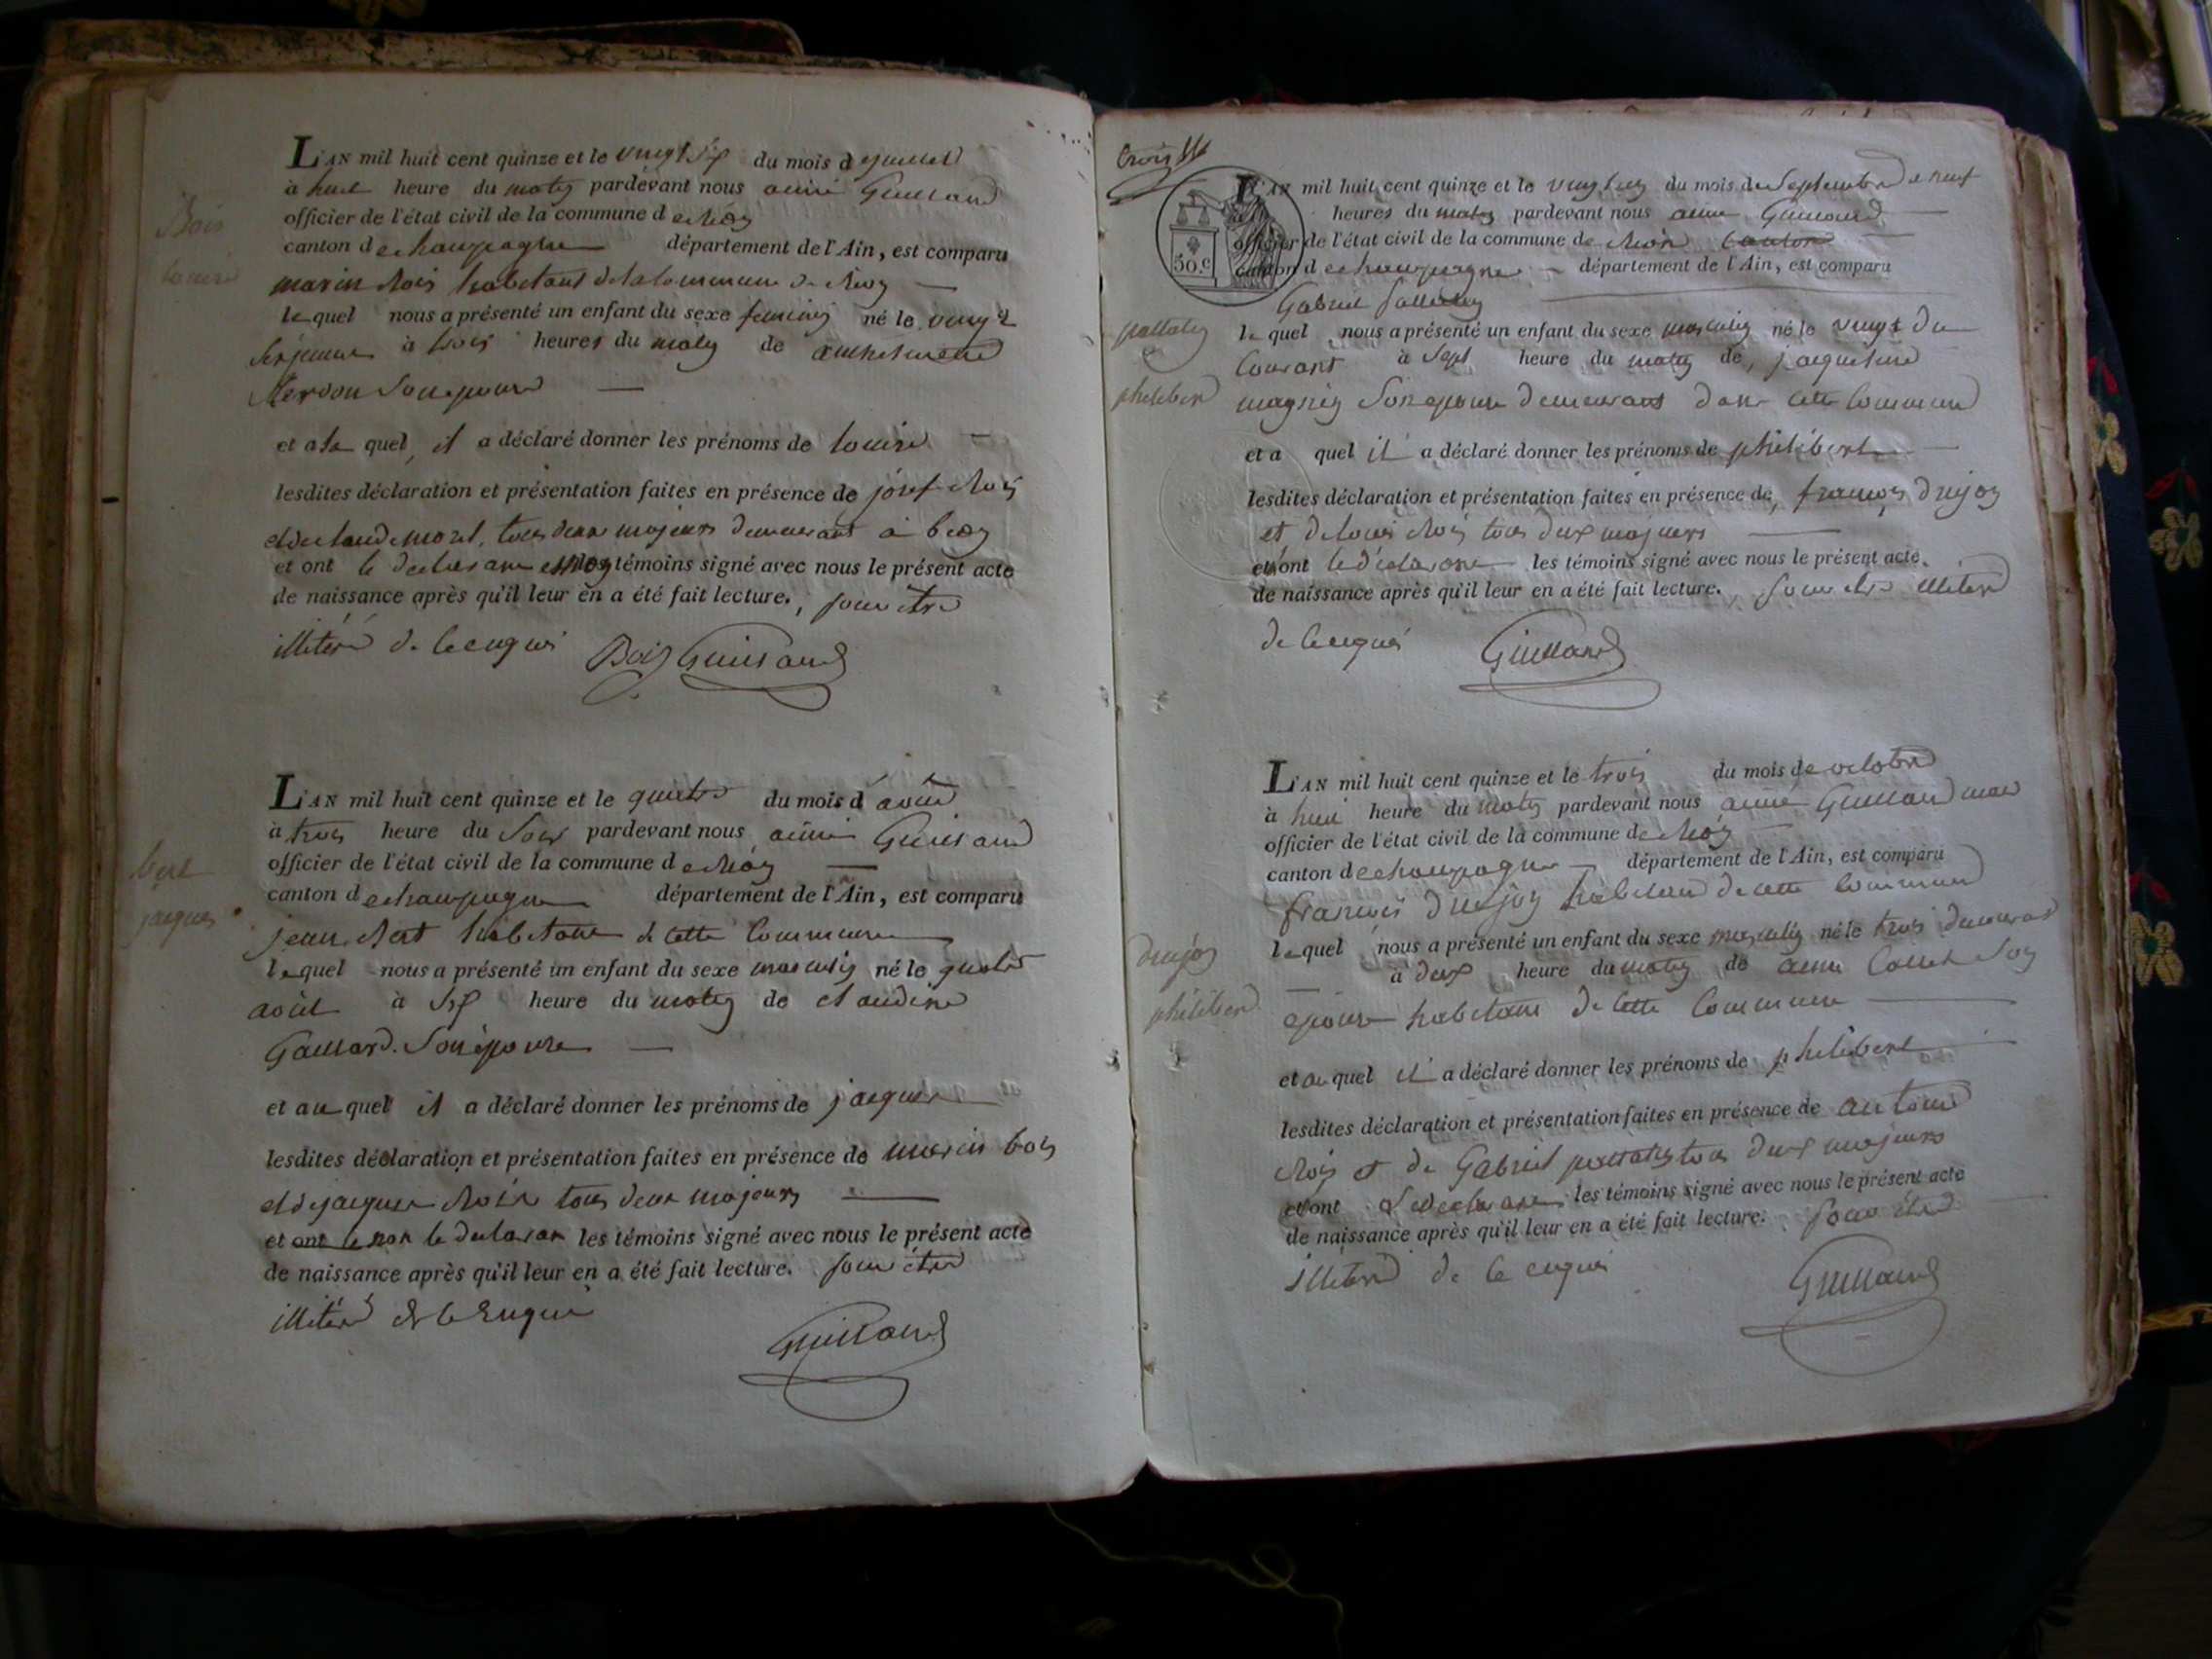 Bois
louise
L'AN mil huit cent quinze et le vingt six du mois d juillet
à huit heure du matin pardevant nous aimé Guilland
officier de l'état civil de la commune de
canton de champagne département de l'Ain, est comparu
marin Bois habitant de la commune de
lequel nous a présenté un enfant du sexe feminin né le vingt
six à trois heures du matin de
son epouse
et a la quel, il a déclaré donner les prénoms de louise
lesdites déclaration et présentation faites en présence de josef Bois
et de claude moret, tous deux majeurs demeurant à
et ont le declarant et les témoins signé avec nous le présent acte
de naissance après qu'il leur en a été fait lecture. pour etre
illiteré de ce enquis Bois Guilland
Bert
jacques
L'AN mil huit cent quinze et le quatre du mois d août
à trois heure du soir pardevant nous aimé Guilland
officier de l'état civil de la commune de
canton de champagne département de l'Ain, est comparu
jean Bert habitant de cette commune
lequel nous a présenté un enfant du sexe masculin né le quatre
août à six heure du matin de claudine
Gaillard son épouse
et au quel il a déclaré donner les prénoms de jacques
lesdites déclaration et présentation faites en présence de marin bois
et de jacques Bois tous deux majeurs
et ont le declarant les témoins signé avec nous le présent acte
de naissance après qu'il leur en a été fait lecture. pour être
illiteré de ce enquis
Guilland
trois
50.c
L'AN mil huit cent quinze et le du mois de Septembre a neuf
heures du matin pardevant nous aimé Guilland
officier de l'état civil de la commune de canton
canton de champagne département de l'Ain, est comparu
Gabriel
philibert
lequel nous a présenté un enfant du sexe masculin né le vingt du
courant à sept heure du matin de, jacqueline
magnin son epouse demeurant dans cette commune
et a quel il a déclaré donner les prénoms de philibert
lesdites déclaration et présentation faites en présence de, françois dujon
et de louis Bois tous deux majeurs
et ont le déclarant les témoins signé avec nous le présent acte.
de naissance après qu'il leur en a été fait lecture. pour etre illiteré
de ce enquis Guilland
dujon
philibert
L'AN mil huit cent quinze et le trois du mois de octobre
à huit heure du matin pardevant nous aimé Guilland maire
officier de l'état civil de la commune de
canton de champagne département de l'Ain, est comparu
françois dujon habitant de cette commune
lequel nous a présenté un enfant du sexe masculin né le trois du courant
à deux heure du matin de Collet son
epouse habitant de cette commune
et au quel il a déclaré donner les prénoms de philibert
lesdites déclaration et présentation faites en présence de antoine
Bois et de Gabriel tous deux majeurs
et ont le declarant les témoins signé avec nous le présent acte
de naissance après qu'il leur en a été fait lecture. pour être
illiteré de ce enquis
Guilland